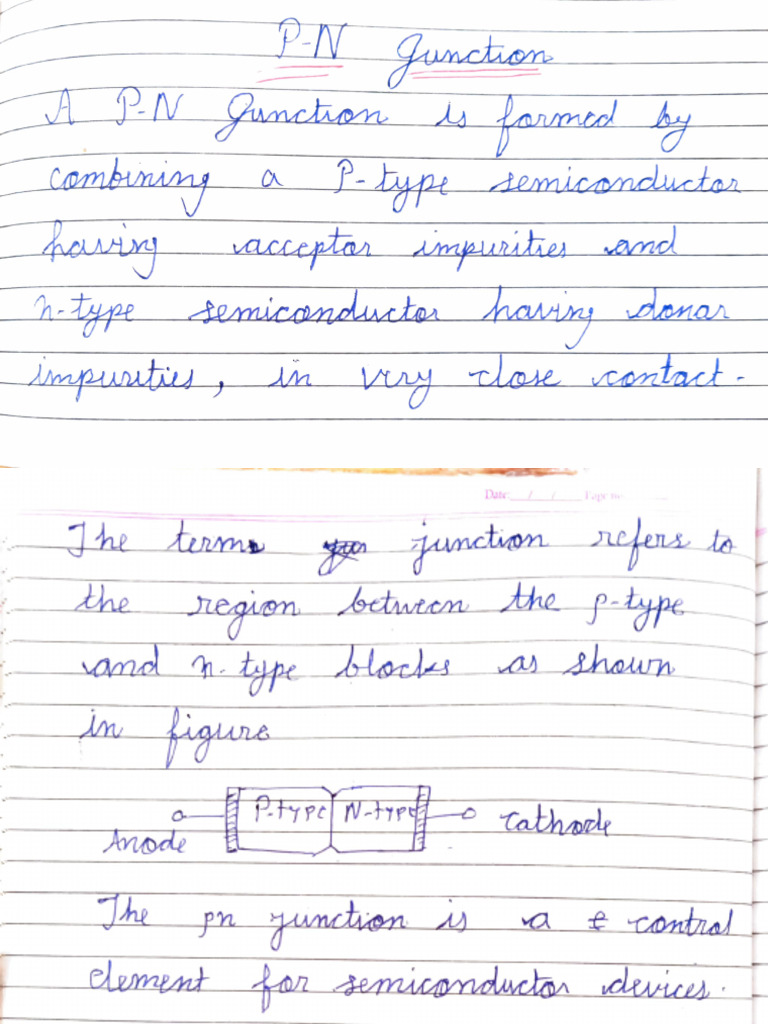 P-N Junction
A P-N Junction is formed by
combining a P-type semiconductor
having acceptor impurities and
n-type semiconductor having donar
impurities, in very close contact.
Date: / / Page no:
The term junction refers to
the region between the p-type
and n-type blocks as shown
in figure
P-type N-type
Anode Cathode
The pn junction is a control
element for semiconductor devices.